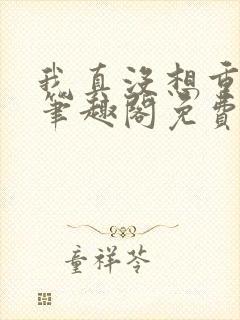 我真没想重
笔趣阁免费
童祥苓